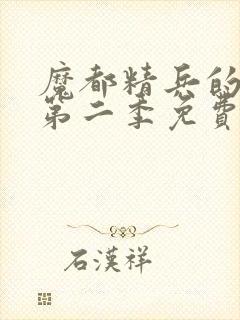 魔都精兵的
第二季免費
石漢祥